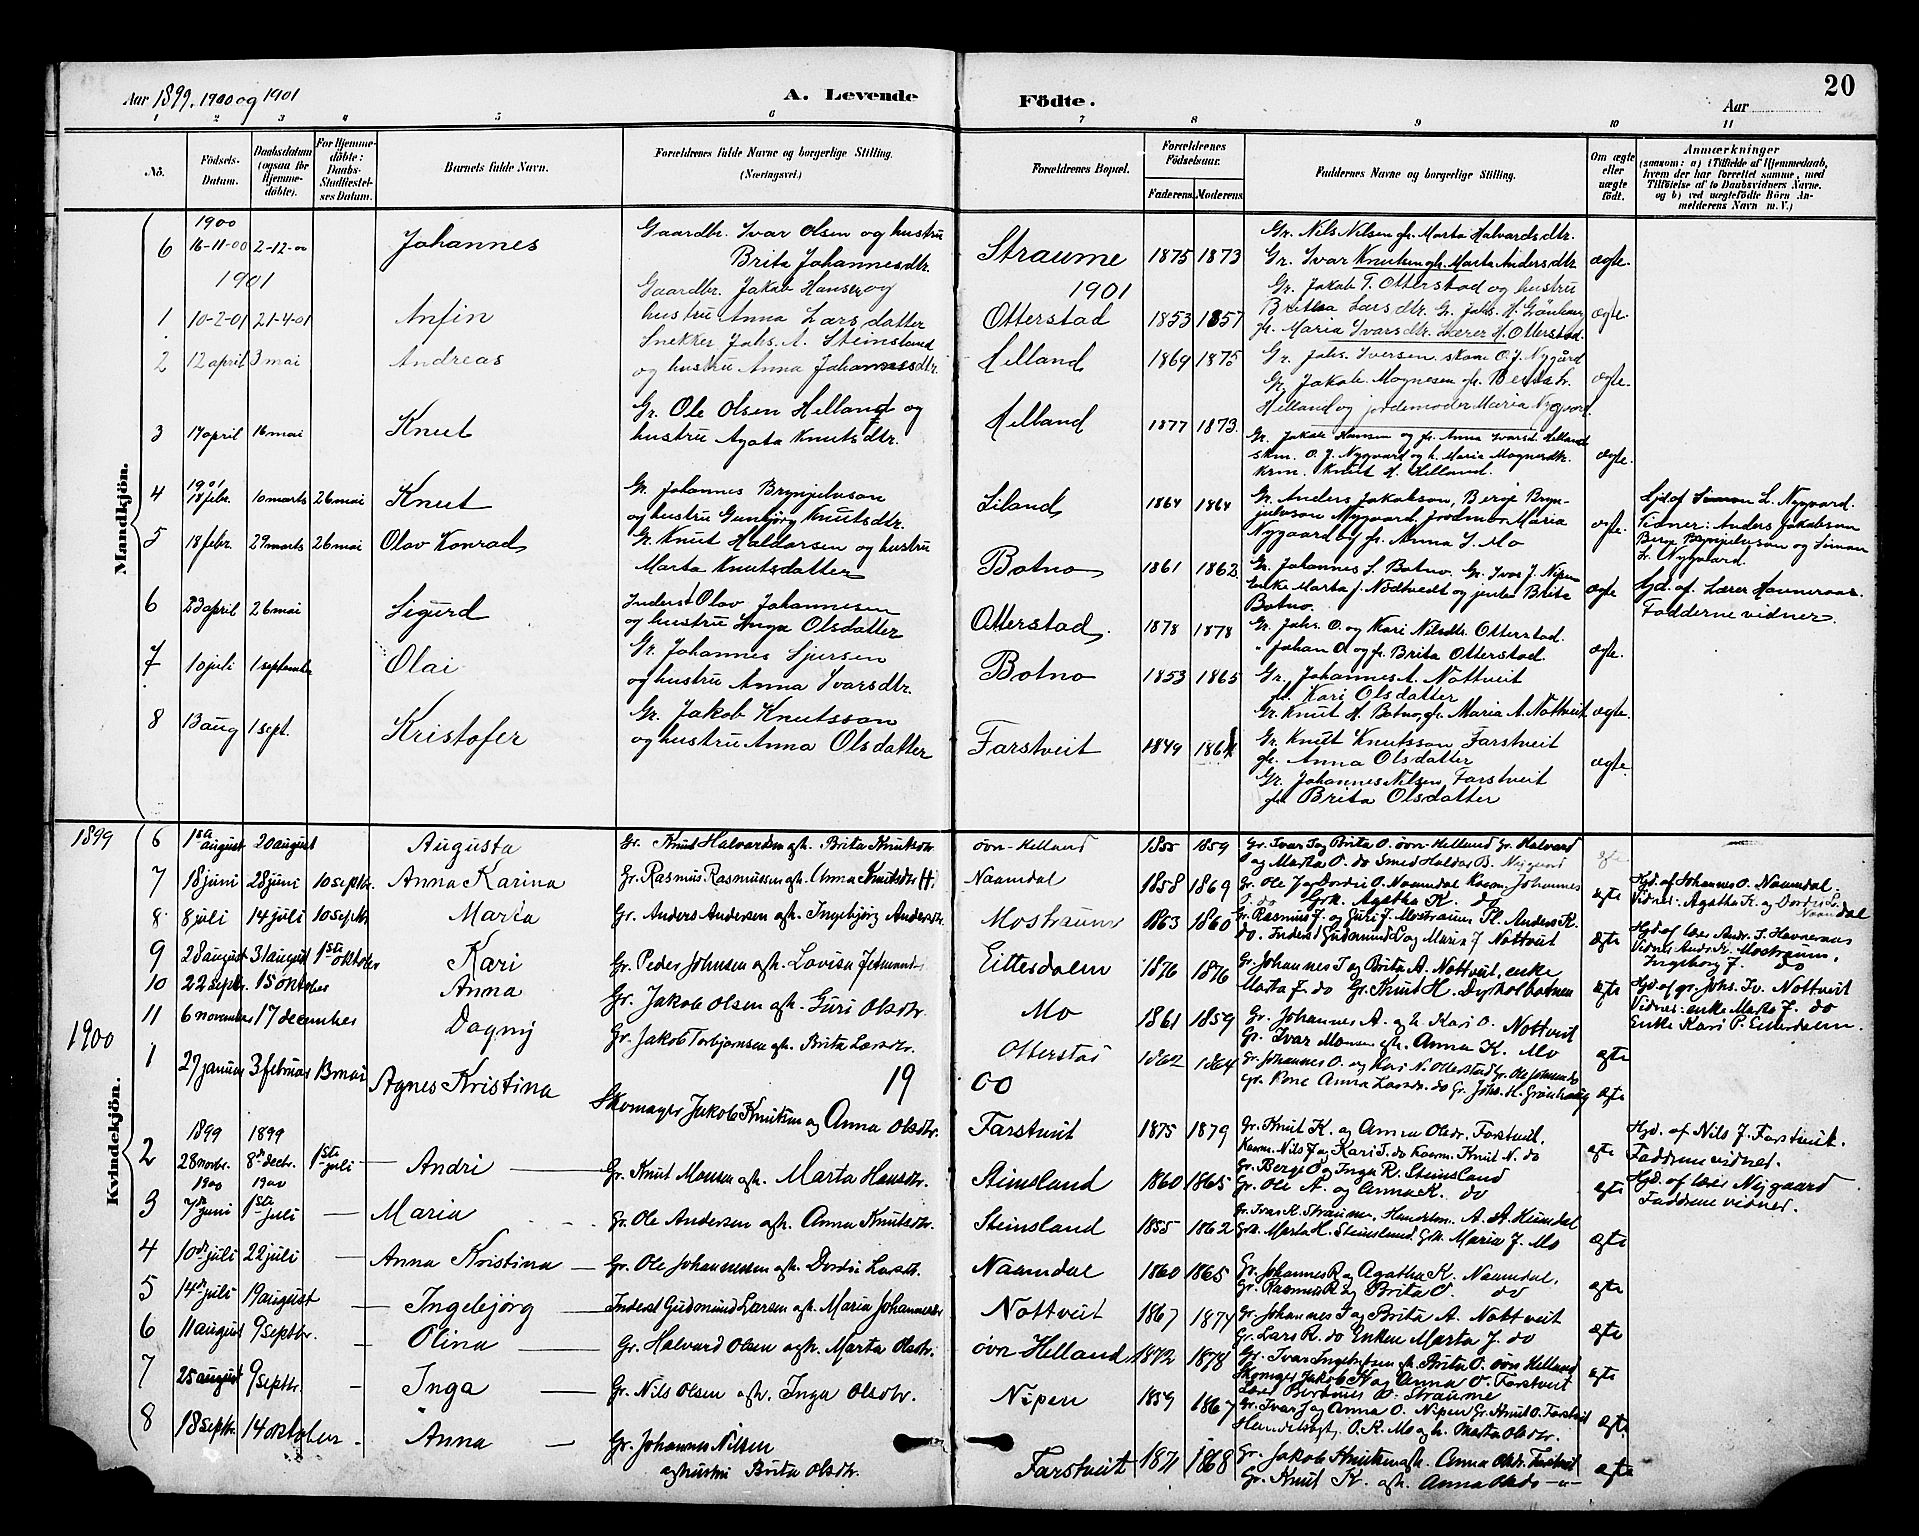 20
Aar 1899, 1900 og 1901
A. Levende Födte.
Aar
1 2 3 4 5 6 7 8 9 10 11
No.
Födsels-Datum.
Daabsdatum (ogsaa for Hjemmedöbte).
For Hjemmedöbte: Daabs-Stadfæstelses Datum.
Barnets fulde Navn.
Forældrenes fulde Navne og borgerlige Stilling.
(Næringsvei.)
Forældrenes Bopæl.
Forældrenes Födselsaar.
Faderens. Moderens.
Faddernes Navne og borgerlige Stilling.
Om ægte eller uægte födt.
Anmærkninger
(saasom: a) i Tilfælde af Hjemmedaab, hvem der har forrettet samme, med Tilföielse af to Daabsvidners Navne. og b) ved uægtefödte Börn Anmelderens Navn m. V.)
Mandkjön.
1900
6 16-11-00 2-12-00 Johannes Gaardbr. Ivar Olsen og hustru Brita Johannesdtr. Straume 1875 1873 Gr. Nils Nilsen fr. Marta Halvardsdtr. Gr. Ivar Knutsen fr. Marta Andersdtr. ægte.
1901 1901
1 10-2-01 21-4-01 Anfin Gaardbr. Jakob Hansen og hustru Anna Larsdatter Otterstad 1853 1857 Gr. Jakob T. Otterstad og hustru Larsdtr. Gr. Johs. H. fr. Maria Ivarsdtr. Lærer H. Otterstad. ægte.
2 12 april 3 mai Andreas Snekker Johs. A. Steinsland og hustru Anna Johannesdtr. Helland 1869 1875 Gr. Johs. Iversen skom O. J. Nygård Gr. Jakob Magnesen fr. Helland og jordemoder Maria Nygård. ægte.
3 17 april 16 mai Knut Gr. Ole Olsen Helland og hustru Agata Knutsdtr. Helland 1877 1873 Gr. Jakob Hansen og fr. Anna Ivarsd Helland skm. O. J. Nygaard og h. Maria Magnesdtr. krm. Knut H. Helland. ægte.
1901
4 18 febr. 10 marts 26 mai Knut Gr. Johannes Brynjulvson og hustru Gunbjörg Knutsdtr. Liland 1864 1864 Gr. Anders Jakobson, Berge Brynjulvson Nygaard, Jordmor Maria Nygaard og fr. Anna S. Mo ægte. Hjd. af Simon L. Nygaard. Vidner: Anders Jakobson Berge Brynjulvson og Simon L. Nygaard.
5 18 febr. 29 marts 26 mai Olav Konrad Gr. Knut Haldorsen og hustru Marta Knutsdatter Botno 1861 1862 Gr. Johannes S. Botno. Gr. Ivar J. Nipen Enke Marta J. Nödtvedt og Brita Botno. ægte Hjd. af. Lærer Havneraas. Fadderne vidner.
6 23 april 26 mai Sigurd Inderst Olav Johannesen og hustru Inga Olsdatter Otterstad. 1878 1878 Gr. Johs. O. og Kari Nilsdtr. Otterstad. " Johan O og fr. Brita Otterstad. ægte.
7 10 juli 1 september Olai Gr. Johannes Sjursen og hustru Anna Ivarsdtr. Botno 1853 1865 Gr. Johannes A. Nottveit fr. Kari Olsdatter Gr. Knut H. Botno, fr. Maria A. Nottveit ægte.
8 13 aug 1 sept. Kristofer Gr. Jakob Knutsson og hustru Anna Olsdatter Farstveit 1849 Gr. Knut Knutsson Farstveit fr. Anna Olsdatter Gr. Johannes Nilsen, Farstveit fr. Brita Olsdatter ægte.
Kvindekjön.
1899
6 1ste august 20 august Augusta Gr. Knut Halvardsen og h. Brita Knutsdr. övn-Helland 1855 1859 Gr. Ivar I og Brita O. övn-Helland Gr. Halvard O og Marta O. do Smed Haldor B. Nygaard ægte
7 18 juni 28 juni 10 septbr. Anna Karina Gr. Rasmus Rasmussen og h. Anna Knutsdtr Naamdal 1858 1869 Gr. Ole J og Dordei O. Naamdal Johannes Grk. Agatha K. do ægte Hjd. af Johannes O. Naamdal. Vidner: Agatha K. og Naamdal
8 8 juli 14 juli 10 septbr Maria Gr. Anders Andersen og h. Ingebjörg Andersdr. Mostraum 1863 1860 Gr. Rasmus J. og Guri J. Mostraum Pl. Anders K. do. Inderst Gudmund L og Maria J Nottvut ægte Hjd af lærer Andr. S. Havneraas Vidner Anders K. Mostraum, Ingeborg J. do
9 28 august 31 august 1ste oktober Kari Gr. Peder Johnsen og h. Lovisa Eitlesdalen 1876 1876 Gr. Johannes I og Brita A. Nottvut, enke Marta J. do Gr. Knut H. ægte Hjd. af gr. Johs. Iv. Nottvut Vidner: enke Marta J. do Enke Kari P.
10 22 septbr. 15 oktober Anna Gr. Jakob Olsen og h. Guri Olsdtr. Mo 1861 1859 Gr. Johannes A. og h. Kari O. Nottvut Gr. Ivar Monsen og h. Anna K. Mo ægte
11 6 november 17 december Dagny Gr. Jakob Torbjörnsen og h. Brita Larsdr. Otterstad 1862 1864 Gr. Johannes O. og Kari N. Otterstad Gr. Ole Johannes do Anna Larsdr. do Gr. Johs. H. Grönhaug ægte
1900 1900
1 27 januar 3 februar 13 mai Agnes Kristina Skomager Jakob Knutsen og Anna Olsdtr. Farstvut 1875 1879 Gr. Knut K. og Anna Olsdr. Farstvut. Nils J og Kari I. do Knut N. do ægte Hjd. af Nils J. Farstvut. Faddrene vidner.
1899 1899
2 28 novbr. 8de decbr. 1ste juli Andri Gr. Knut Monsen og h. Marta Hansdr. Steinsland 1860 1865 Gr. Berge O og Inger R. Steinsland Gr. Ole A. og Anna K. do ægte Hjd. af lærer Nygaard Faddrene vidner.
1900 1900
3 7de juni 1ste juli Maria Gr. Ole Andersen og h. Anna Knutsdr. Steinsland 1855 1862 Gr. Ivar K. Straume, A. A. Grk. Marta H. Steinsland Grk. Maria J. Mo ægte
4 10de juli 22 juli Anna Kristina Gr. Ole Johannessen og h. Dordei Larsdr. Naamdal 1860 1865 Gr. Johannes R og Agatha K. Naamdal. Gr. Rasmus R og Brita O. do ægte
5 14de juli 19 august Ingebjörg Inderst Gudmund Larsen og h. Maria Johannesdr Nottveit 1867 1874 Gr. Johannes I og Brita A. Nottveit Gr. Lars R. do Enken Marta J. do ægte
6 11 august 9 septbr. Olina Gr. Halvard Olsen og h. Marta Olsdtr. övn-Helland 1872 1878 Gr. Ivar Ingebrigtsen og h. Brita O. övn Helland Skomager Jakob K og Anna O. Farstvut O. Straume ægte
7 25 august 9 septbr. Inga Gr. Nils Olsen og h. Inga Olsdtr. Nipen 1859 1867 Gr. Ivar J og Anna O. Nipen Gr. Knut O. Farstvut O. K. Mo og h. Marta Olsdtr. ægte
8 18 septbr. 14 oktober. Anna Gr. Johannes Nilsen og hustru Brita Olsdtr. Farstveit 1871 1868 Gr. Jakob Knutsen og h. Anna Olsdr. Farstvut Gr. Knut K. og h. Anna Olsdr -"- ægte